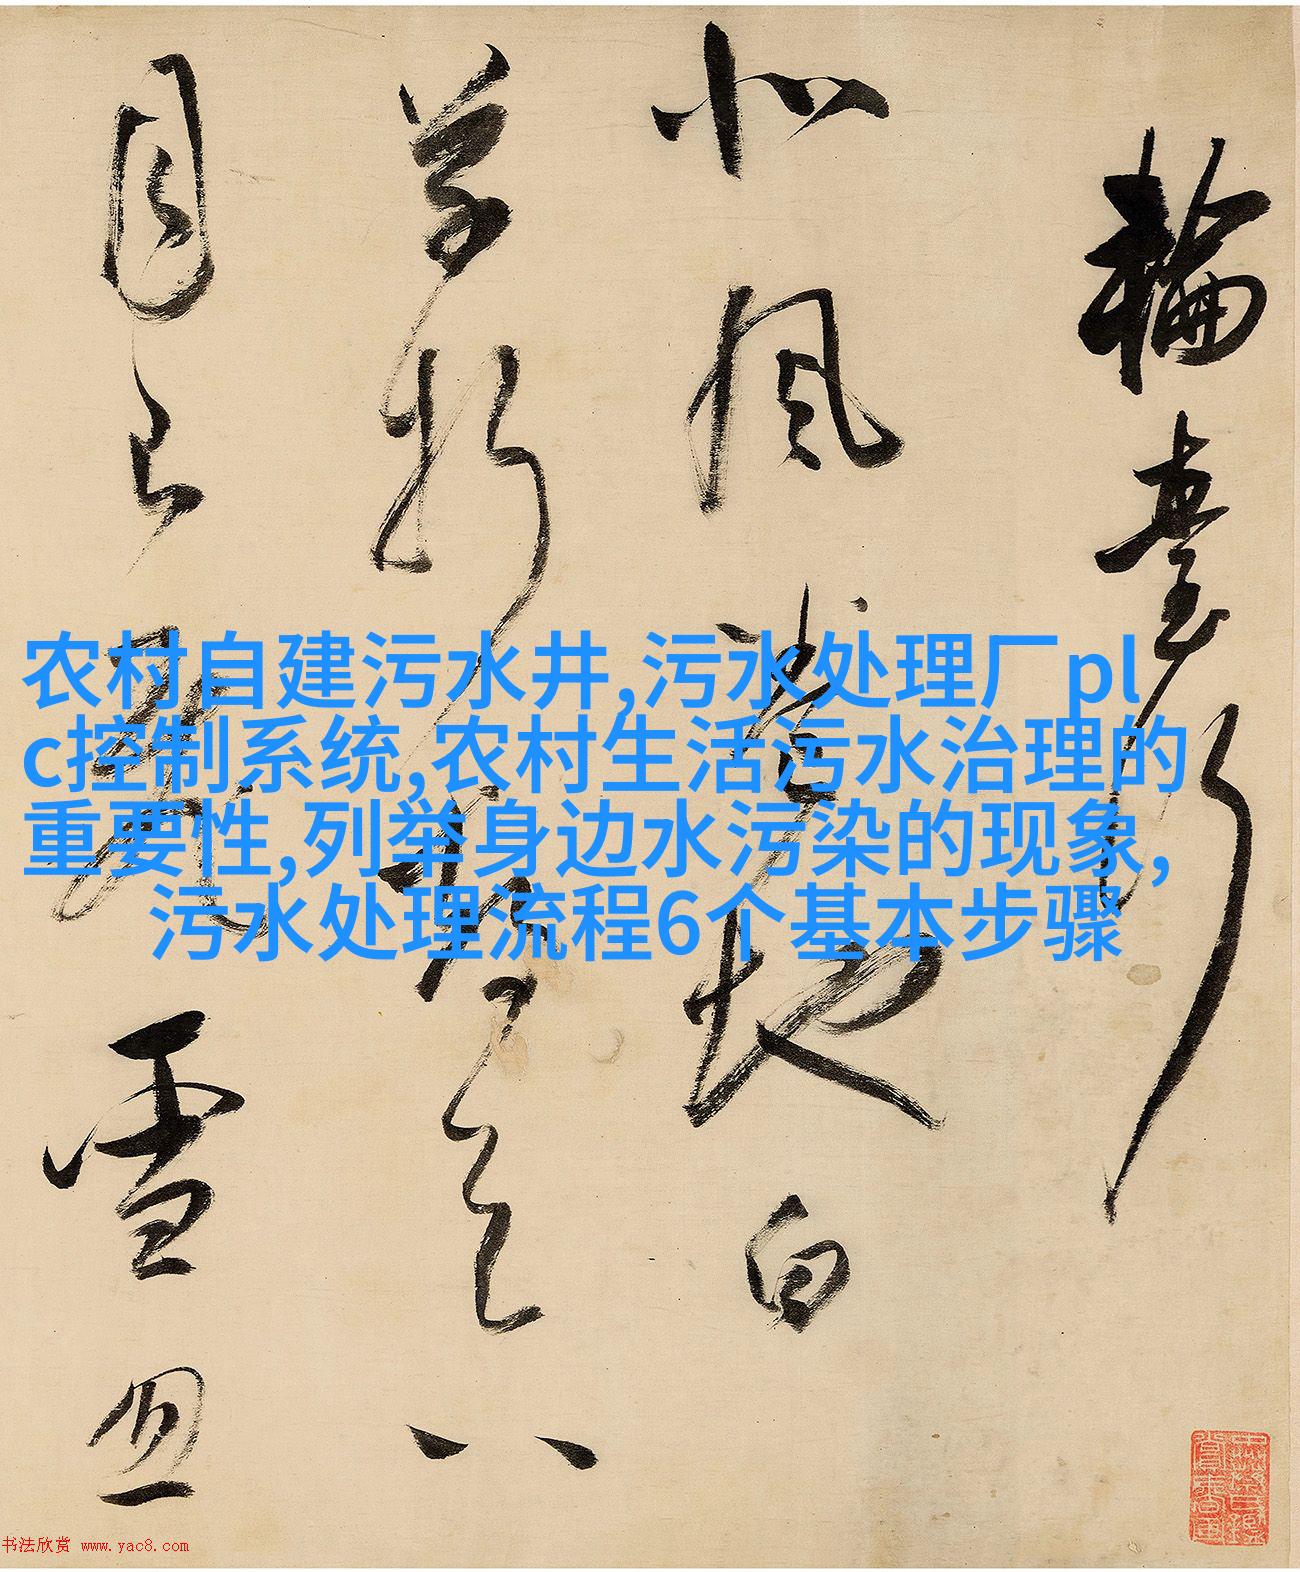 輪臺行
北風捲地白
草折胡天八
月飛雪
农村自建污水井,污水处理厂pl
c控制系统,农村生活污水治理的
重要性,列举身边水污染的现象,
污水处理流程6个基本步骤
书法欣赏 www.yac8.com